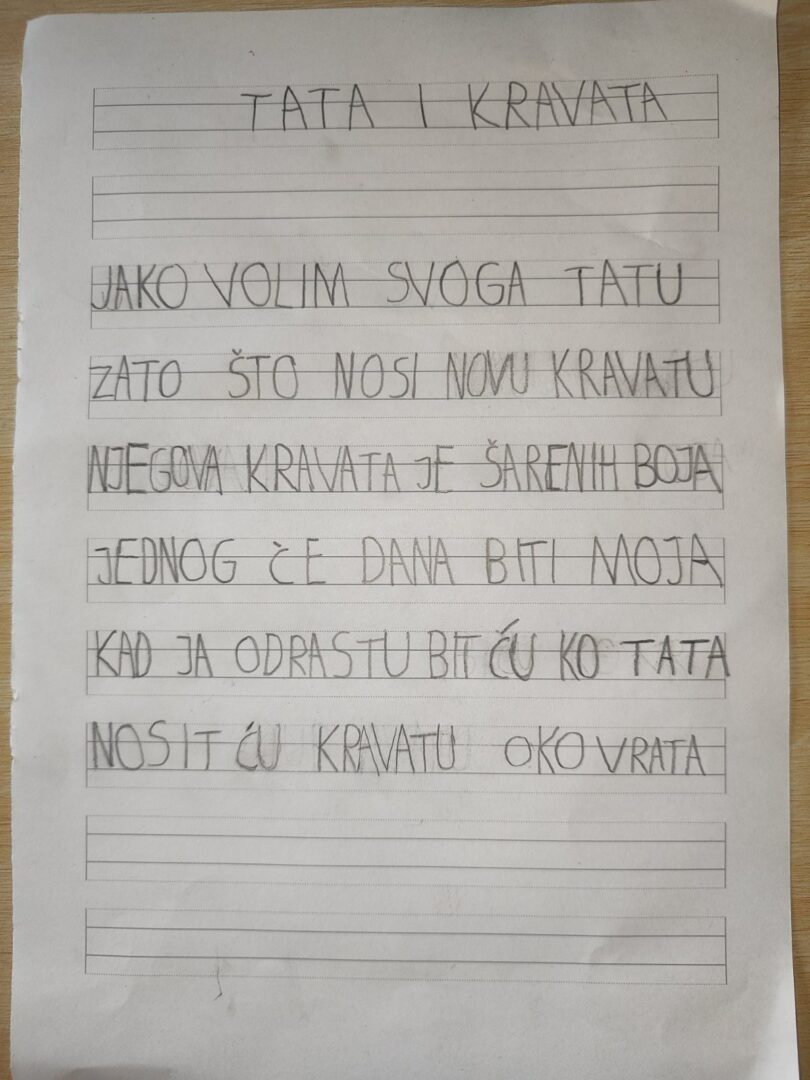 TATA I KRAVATA
JAKO VOLIM SVOGA TATU
ZATO ŠTO NOSI NOVU KRAVATU
NJEGOVA KRAVATA JE ŠARENIH BOJA
JEDNOG ĊE DANA BITI MOJA
KAD JA ODRASTU BIT ĆU KO TATA
NOSIT ĆU KRAVATU OKO VRATA